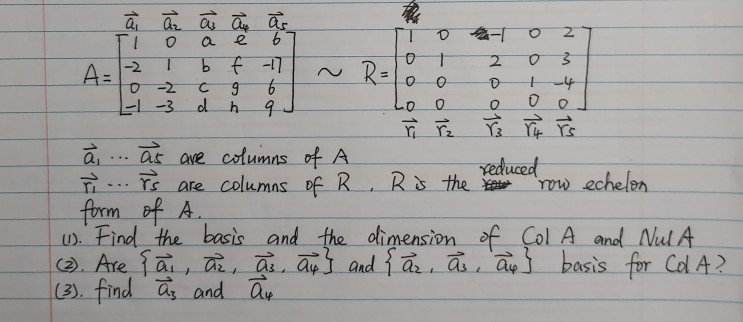 a⃗₁ a⃗₂ a⃗₃ a⃗₄ a⃗₅
A = [ 1 0 a e 6
-2 1 b f -17
0 -2 c g 6
-1 -3 d h 9 ]
~ R = [ 1 0 -1 0 2
0 1 2 0 3
0 0 0 1 -4
0 0 0 0 0 ]
r⃗₁ r⃗₂ r⃗₃ r⃗₄ r⃗₅
a⃗₁ ... a⃗₅ are columns of A
r⃗₁ ... r⃗₅ are columns of R, R is the reduced row echelon
form of A.
(1). Find the basis and the dimension of Col A and Nul A
(2). Are {a⃗₁, a⃗₂, a⃗₃, a⃗₄} and {a⃗₂, a⃗₃, a⃗₄} basis for Col A?
(3). find a⃗₃ and a⃗₄